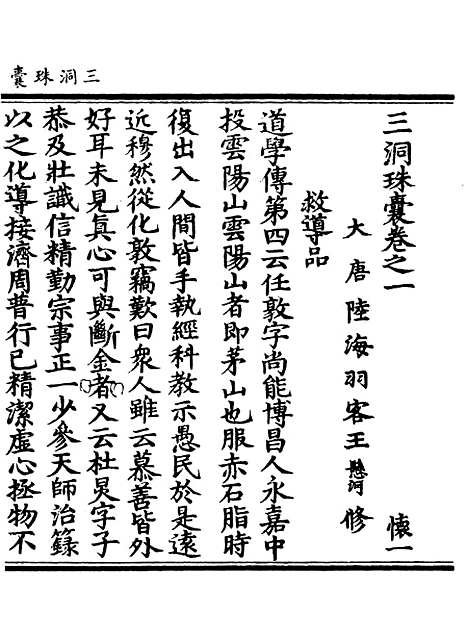 三洞珠囊
三洞珠囊卷之一 懷一
大唐陸海羽客王懸河修
救導品
道學傳第四云任敦字尚能博昌人永嘉中
投雲陽山雲陽山者即茅山也服赤石脂時
復出入人間皆手執經科教示愚民於是遠
近穆然從化敦竊歎曰衆人雖云慕善皆外
好耳未見真心可與斷金者又云杜炅字子
恭及壯識信精勤宗事正一少參天師治籙
以之化導接濟周普行已精潔虛心拯物不